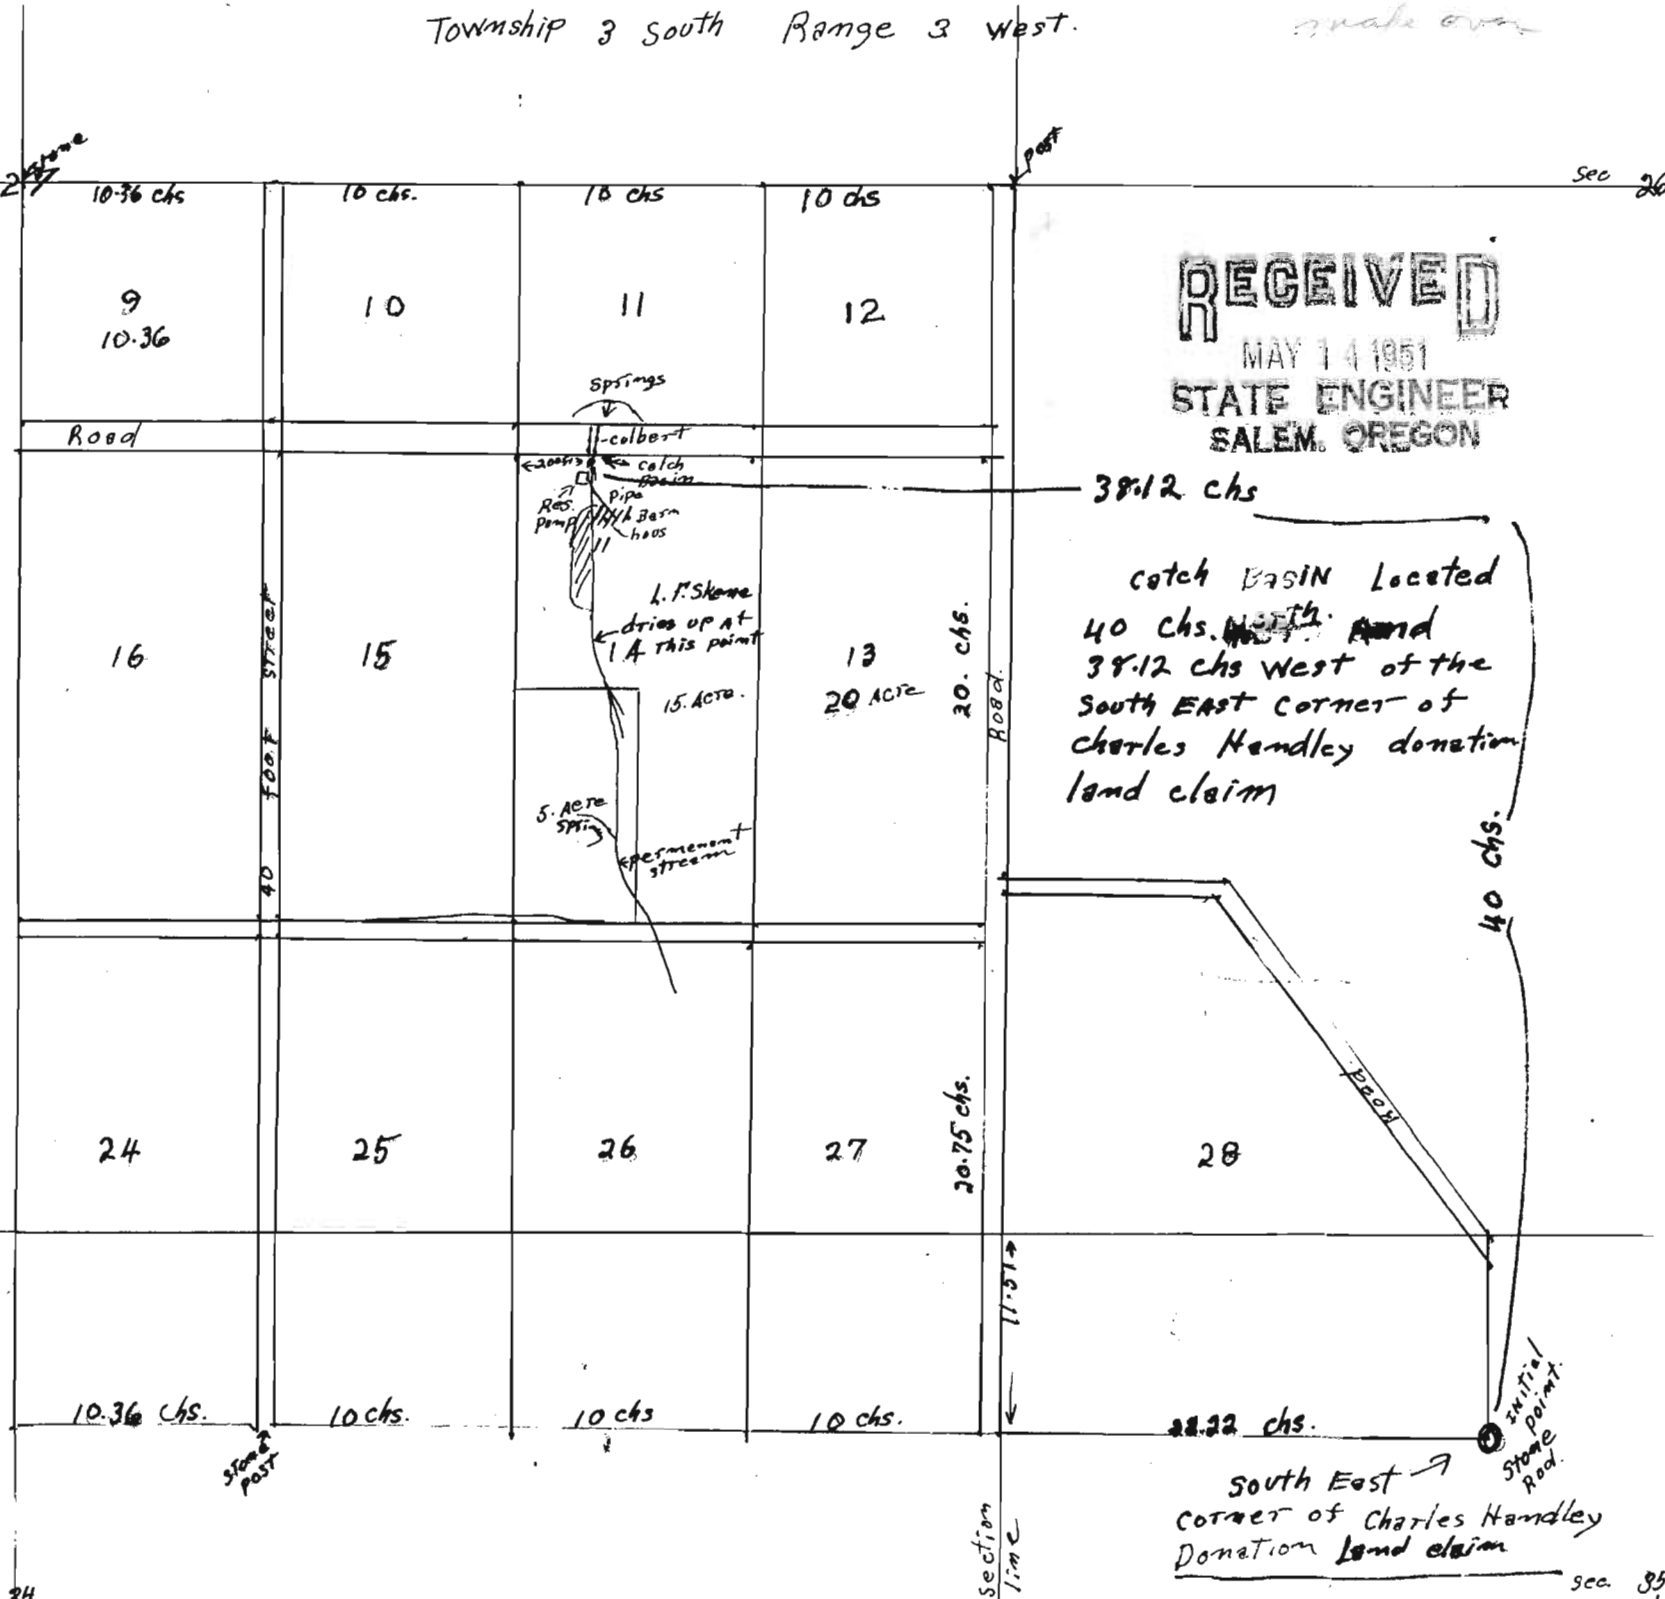 Township 3 South Range 3 West.
make over
Stone
post
2
10.36 chs
10 chs.
10 chs
10 chs
Sec 26
9
10.36
10
11
12
RECEIVED
MAY 14 1951
STATE ENGINEER
SALEM, OREGON
Springs
Road
colbert
catch
Basin
Res.
pump
pipe
Barn
hous
38.12 chs
catch Basin Located
40 chs. North. And
38.12 chs West of the
South East Corner of
Charles Handley donation
land claim
40 chs.
L. F. Skene
dries up At
This point
16
15
13
20 Acre
15. Acre.
20. chs.
Road
40 foot street
5. Acre
Spring
permenent
stream
24
25
26
27
28
20.75 chs.
Road
11.51
10.36 chs.
10 chs.
10 chs
10 chs.
22.22 chs.
stone
post
Initial
point.
Stone
Rod.
South East
Corner of Charles Handley
Donation Land claim
Section
line
34
Sec. 35